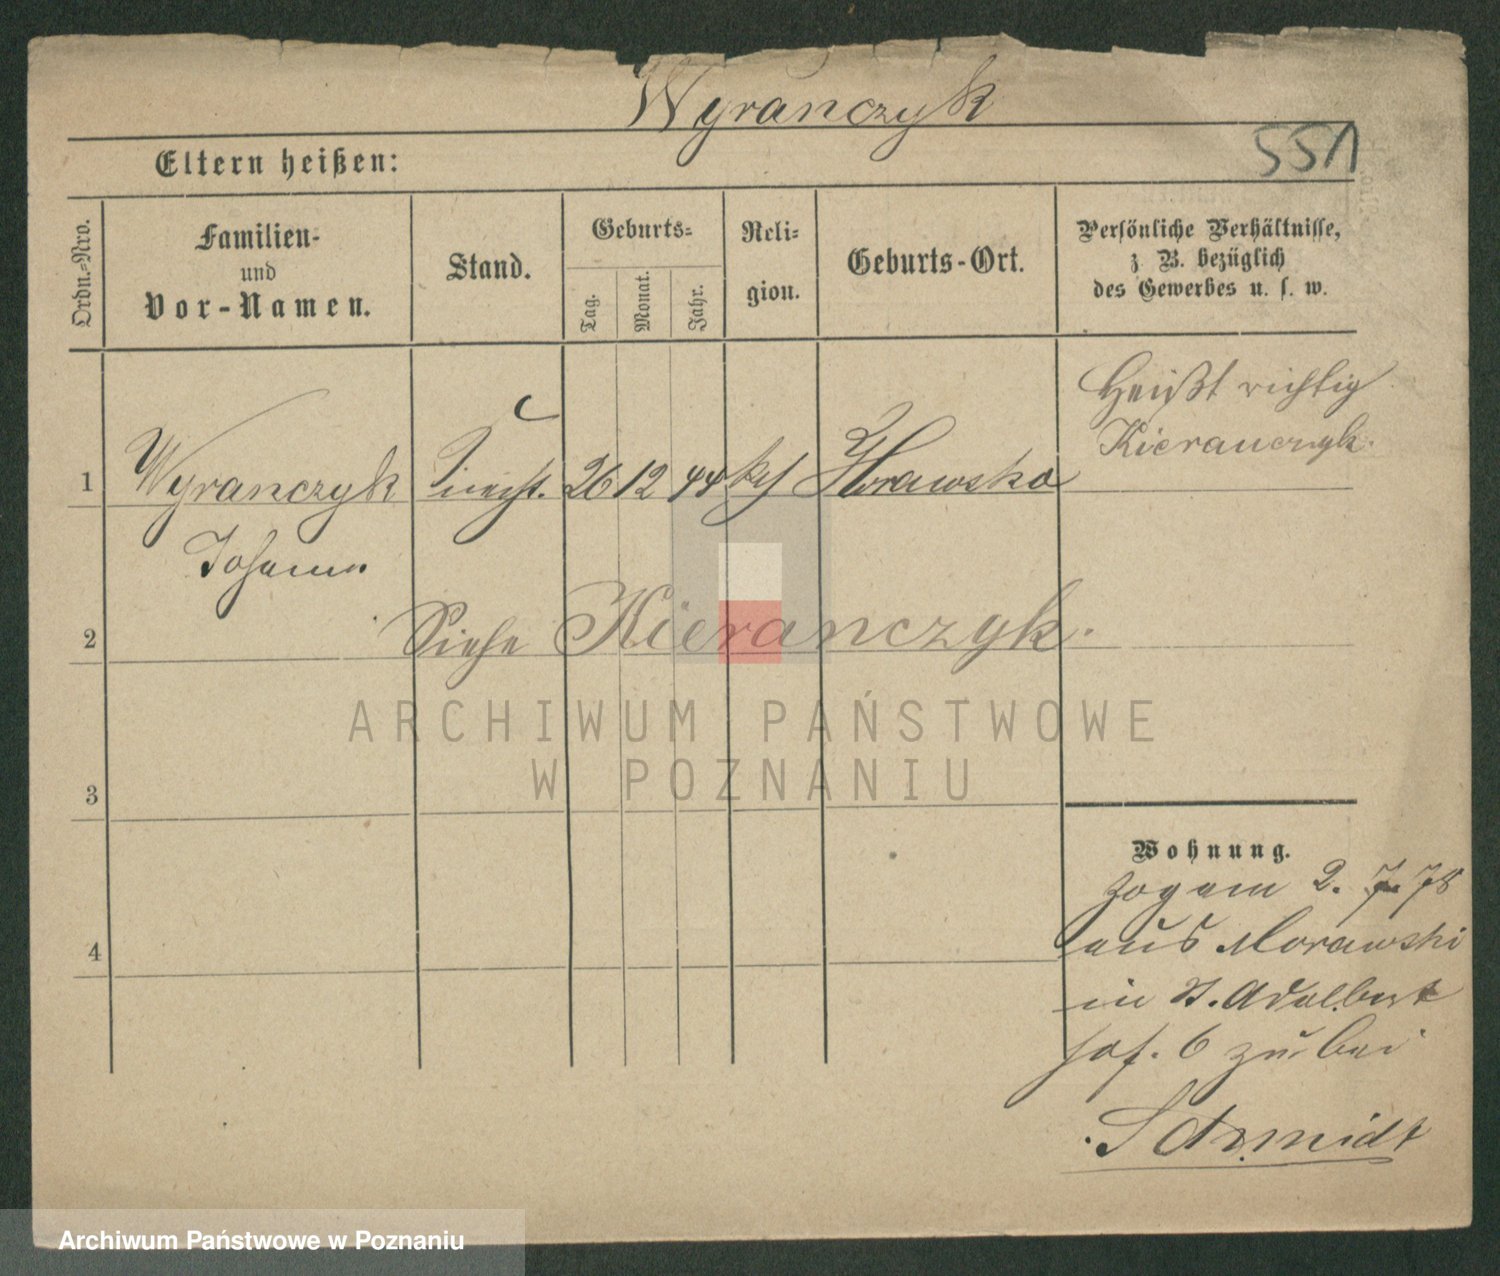 Wyranczyk
551
Eltern heißen:
Ordn.-Nro.
Familien-
und
Vor-Namen.
Stand.
Geburts-
Tag.
Monat.
Jahr.
Reli-
gion.
Geburts-Ort.
Persönliche Verhältnisse,
z B. bezüglich
des Gewerbes u. s. w.
Heißt richtig
Kieranczyk.
1 Wyranczyk 26 12 44
Johann
2 Siehe Kieranczyk.
ARCHIWUM PAŃSTWOWE
W POZNANIU
3
Wohnung.
zog am 2. 7. 78
4 aus Morawski
in St. Adalbert
6 zu bei
Schmidt
Archiwum Państwowe w Poznaniu